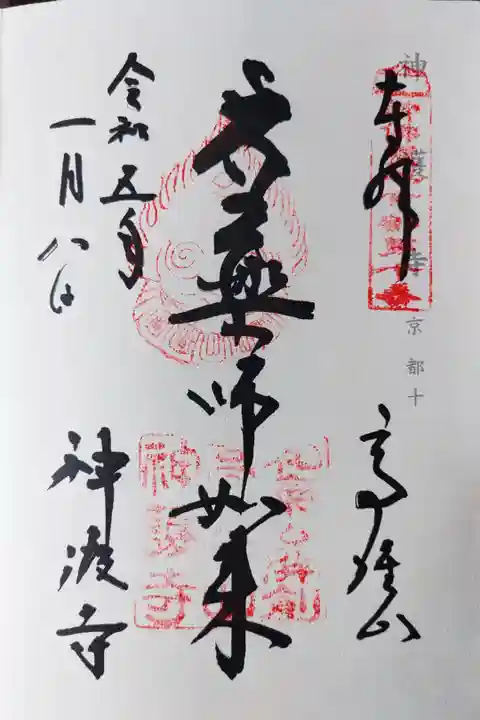 神護寺 京都十
奉拝
高雄山
薬師如来
令和五年
一月八日
神護寺
神護寺